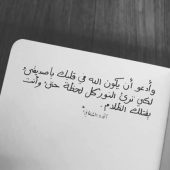 وأدعو أن يكون الله في قلبك يا صديقي
لكي ترى النور كل لحظة حتى وأنت
بقلب الظلام.